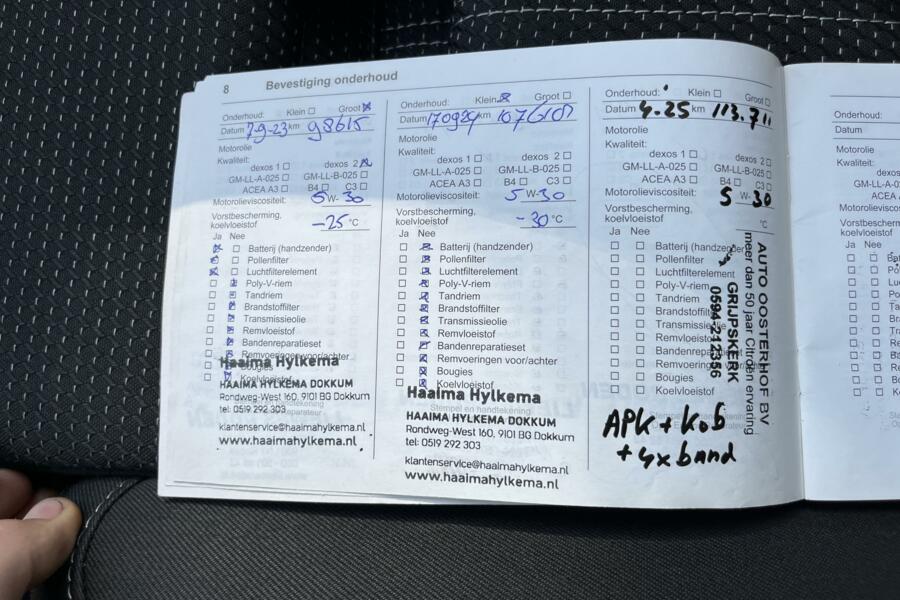 8 Bevestiging onderhoud
Onderhoud: Klein Groot
Datum 7-9-23 km 98615
Motorolie
Kwaliteit:
dexos 1 dexos 2
GM-LL-A-025 GM-LL-B-025
ACEA A3 B4 C3
Motorolieviscositeit: 5 W- 30
Vorstbescherming,
koelvloeistof -25 °C
Ja Nee
Batterij (handzender)
Pollenfilter
Luchtfilterelement
Poly-V-riem
Tandriem
Brandstoffilter
Transmissieolie
Remvloeistof
Bandenreparatieset
Remvoeringen voor/achter
Bougies
Koelvloeistof
Haaima Hylkema
HAAIMA HYLKEMA DOKKUM
Rondweg-West 160, 9101 BG Dokkum
tel: 0519 292 303
klantenservice@haaimahylkema.nl
www.haaimahylkema.nl
Onderhoud: Klein Groot
Datum 170924 km
Motorolie
Kwaliteit:
dexos 1 dexos 2
GM-LL-A-025 GM-LL-B-025
ACEA A3 B4 C3
Motorolieviscositeit: 5 W-30
Vorstbescherming,
koelvloeistof -30 °C
Ja Nee
Batterij (handzender)
Pollenfilter
Luchtfilterelement
Poly-V-riem
Tandriem
Brandstoffilter
Transmissieolie
Remvloeistof
Bandenreparatieset
Remvoeringen voor/achter
Bougies
Koelvloeistof
Haaima Hylkema
Stempel en handtekening
HAAIMA HYLKEMA DOKKUM
Rondweg-West 160, 9101 BG Dokkum
tel: 0519 292 303
klantenservice@haaimahylkema.nl
www.haaimahylkema.nl
Onderhoud: Klein Groot
Datum 4.25 km 113.711
Motorolie
Kwaliteit:
dexos 1 dexos 2
GM-LL-A-025 GM-LL-B-025
ACEA A3 B4 C3
Motorolieviscositeit: 5 W- 30
Vorstbescherming,
koelvloeistof °C
Ja Nee
Batterij (handzender)
Pollenfilter
Luchtfilterelement
Poly-V-riem
Tandriem
Brandstoffilter
Transmissieolie
Remvloeistof
Bandenreparatieset
Remvoeringen
Bougies
Koelvloeistof
AUTO OOSTERHOF BV
meer dan 50 jaar Citroën ervaring
GRIJPSKERK
0594-212356
APK + KoB
+ 4x band
Onderhoud:
Datum
Motorolie
Kwaliteit:
GM-LL-A-0
ACEA
Motorolievisco
Vorstbescherm
koelvloeistof
Ja Nee